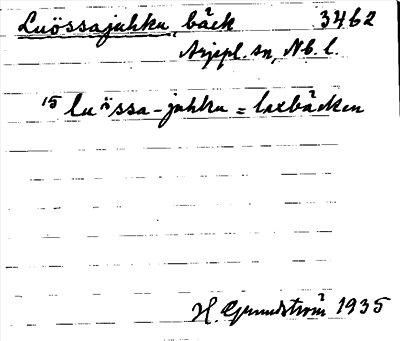 Luössajuhka, bäck 3462
Arjepl. sn, Nb. l.
15 luössa-juhka = laxbäcken
H. Grundström 1935